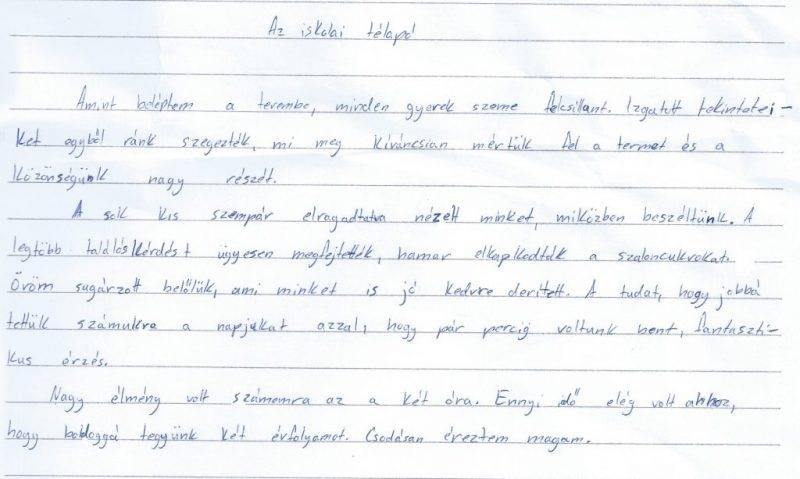 Az iskolai télapó
Amint beléptem a terembe, minden gyerek szeme felcsillant. Izgatott tekintetei-
ket egyből ránk szegezték, mi meg kíváncsian mértük fel a termet és a
közönségünk nagy részét.
A sok kis szempár elragadtatva nézett minket, miközben beszéltünk. A
legtöbb találós kérdést ügyesen megfejtették, hamar elkapkodták a szaloncukrokat.
Öröm sugárzott belőlük, ami minket is jó kedvre derített. A tudat, hogy jobbá
tettük számukra a napjukat azzal, hogy pár percig voltunk bent, fantaszti-
kus érzés.
Nagy élmény volt számomra az a két óra. Ennyi idő elég volt ahhoz,
hogy boldoggá tegyünk két évfolyamot. Csodásan éreztem magam.